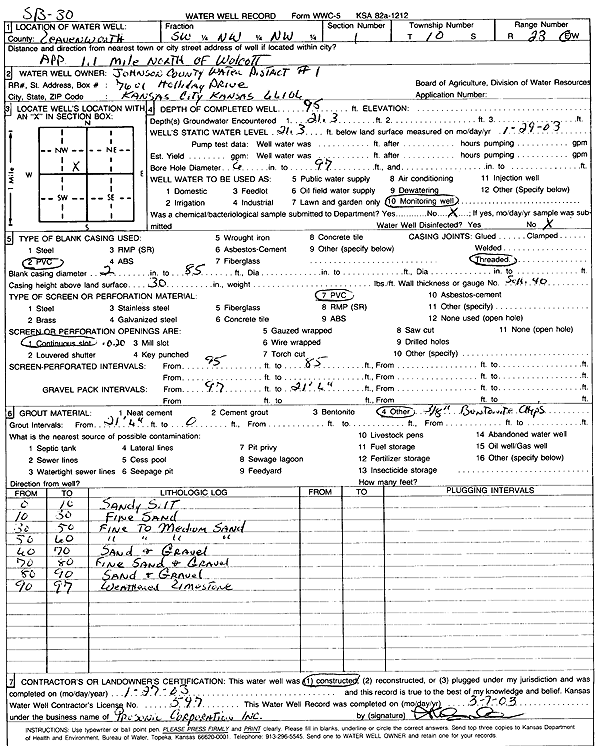 SB-30
WATER WELL RECORD Form WWC-5 KSA 82a-1212
1 LOCATION OF WATER WELL: Fraction Section Number Township Number Range Number
County: Leavenworth SW ¼ NW ¼ NW ¼ 1 T 10 S R 23 E/W
Distance and direction from nearest town or city street address of well if located within city?
APP 1.1 Mile North of Wolcott
2 WATER WELL OWNER: Johnson County Water District #1
RR#, St. Address, Box # : 7601 Holliday Drive Board of Agriculture, Division of Water Resources
City, State, ZIP Code : Kansas City Kansas 66106 Application Number:
3 LOCATE WELL'S LOCATION WITH AN "X" IN SECTION BOX:
N
NW NE
X
W E
SW SE
S
1 Mile
4 DEPTH OF COMPLETED WELL 95 ft. ELEVATION:
Depth(s) Groundwater Encountered 1 21.3 ft. 2 ft. 3 ft.
WELL'S STATIC WATER LEVEL 21.3 ft. below land surface measured on mo/day/yr 1-29-03
Pump test data: Well water was ft. after hours pumping gpm
Est. Yield gpm: Well water was ft. after hours pumping gpm
Bore Hole Diameter 6 in. to 97 ft., and in. to ft.
WELL WATER TO BE USED AS: 5 Public water supply 8 Air conditioning 11 Injection well
1 Domestic 3 Feedlot 6 Oil field water supply 9 Dewatering 12 Other (Specify below)
2 Irrigation 4 Industrial 7 Lawn and garden only 10 Monitoring well
Was a chemical/bacteriological sample submitted to Department? Yes No X ; If yes, mo/day/yr sample was submitted
Water Well Disinfected? Yes No X
5 TYPE OF BLANK CASING USED: 5 Wrought iron 8 Concrete tile CASING JOINTS: Glued Clamped
1 Steel 3 RMP (SR) 6 Asbestos-Cement 9 Other (specify below) Welded
2 PVC 4 ABS 7 Fiberglass Threaded
Blank casing diameter 2 in. to 85 ft., Dia in. to ft., Dia in. to ft.
Casing height above land surface 30 in., weight lbs./ft. Wall thickness or gauge No. Sch. 40
TYPE OF SCREEN OR PERFORATION MATERIAL: 7 PVC 10 Asbestos-cement
1 Steel 3 Stainless steel 5 Fiberglass 8 RMP (SR) 11 Other (specify)
2 Brass 4 Galvanized steel 6 Concrete tile 9 ABS 12 None used (open hole)
SCREEN OR PERFORATION OPENINGS ARE: 5 Gauzed wrapped 8 Saw cut 11 None (open hole)
1 Continuous slot .020 3 Mill slot 6 Wire wrapped 9 Drilled holes
2 Louvered shutter 4 Key punched 7 Torch cut 10 Other (specify)
SCREEN-PERFORATED INTERVALS: From 95 ft. to 85 ft., From ft. to ft.
From ft. to ft., From ft. to ft.
GRAVEL PACK INTERVALS: From 97 ft. to 21'4" ft., From ft. to ft.
From ft. to ft., From ft. to ft.
6 GROUT MATERIAL: 1 Neat cement 2 Cement grout 3 Bentonite 4 Other 3/8" Bentonite Chips
Grout Intervals: From 21'4" ft. to 0 ft., From ft. to ft., From ft. to ft.
What is the nearest source of possible contamination: 10 Livestock pens 14 Abandoned water well
1 Septic tank 4 Lateral lines 7 Pit privy 11 Fuel storage 15 Oil well/Gas well
2 Sewer lines 5 Cess pool 8 Sewage lagoon 12 Fertilizer storage 16 Other (specify below)
3 Watertight sewer lines 6 Seepage pit 9 Feedyard 13 Insecticide storage
Direction from well? How many feet?
FROM TO LITHOLOGIC LOG FROM TO PLUGGING INTERVALS
0 10 Sandy Silt
10 30 Fine Sand
30 50 Fine To Medium Sand
50 60 " " " "
60 70 Sand & Gravel
70 80 Fine Sand & Gravel
80 90 Sand & Gravel
90 97 Weathered Limestone
7 CONTRACTOR'S OR LANDOWNER'S CERTIFICATION: This water well was (1) constructed, (2) reconstructed, or (3) plugged under my jurisdiction and was
completed on (mo/day/year) 1-27-03 and this record is true to the best of my knowledge and belief. Kansas
Water Well Contractor's License No. 597 This Water Well Record was completed on (mo/day/yr) 3-7-03
under the business name of Inc. by (signature)
INSTRUCTIONS: Use typewriter or ball point pen. PLEASE PRESS FIRMLY and PRINT clearly. Please fill in blanks, underline or circle the correct answers. Send top three copies to Kansas Department
of Health and Environment, Bureau of Water, Topeka, Kansas 66620-0001. Telephone: 913-296-5545. Send one to WATER WELL OWNER and retain one for your records.